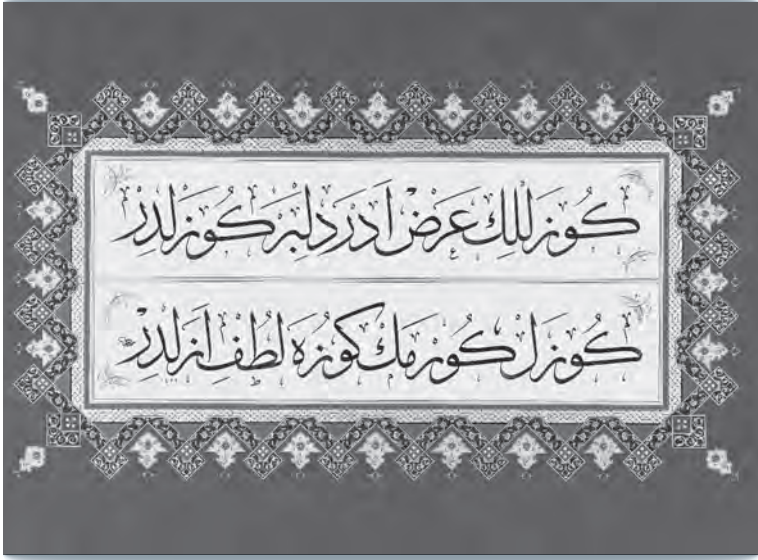 كُوزَللِك عَرْضْ اَدَرْ دِلبَرْ كُوزَلدِرْ
كُوزَل كُورْمَكْ كوزُه لُطْفِ اَزَلدِرْ